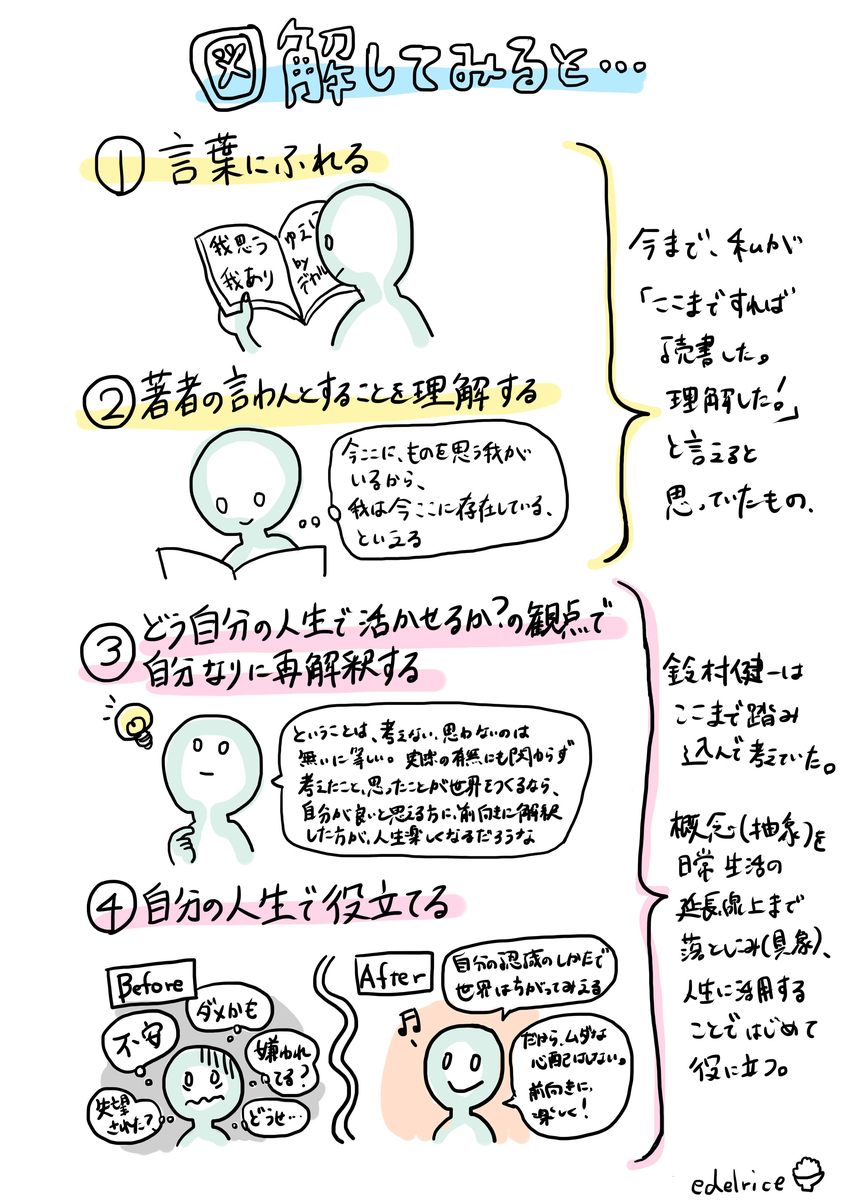 図解してみると…
① 言葉にふれる
我思う
我あり
ゆえに
by
デカル
② 著者の言わんとすることを理解する
今ここに、ものを思う我が
いるから、
我は今ここに存在している、
といえる
今まで、私が
「ここまですれば
読書した。
理解した!」
と言えると
思っていたもの、
③ どう自分の人生で活かせるか?の観点で
自分なりに再解釈する
ということは、考えない、思わないのは
無いに等しい。実際の有無にも関わらず
考えたこと、思ったことが世界をつくるなら、
自分が良いと思える方に、前向きに解釈
した方が、人生楽しくなるだろうな
④ 自分の人生で役立てる
Before
ダメかも
不安
嫌われ
てる?
失望
された?
どうせ…
After
自分の認識のしかたで
世界はちがってみえる
だから、ムダな
心配はしない。
前向きに、
楽しく!
鈴村健一は
ここまで踏み
込んで考えていた。
概念(抽象)を
日常生活の
延長線上まで
落としこみ(具象)、
人生に活用する
ことではじめて
役に立つ。
edelrice